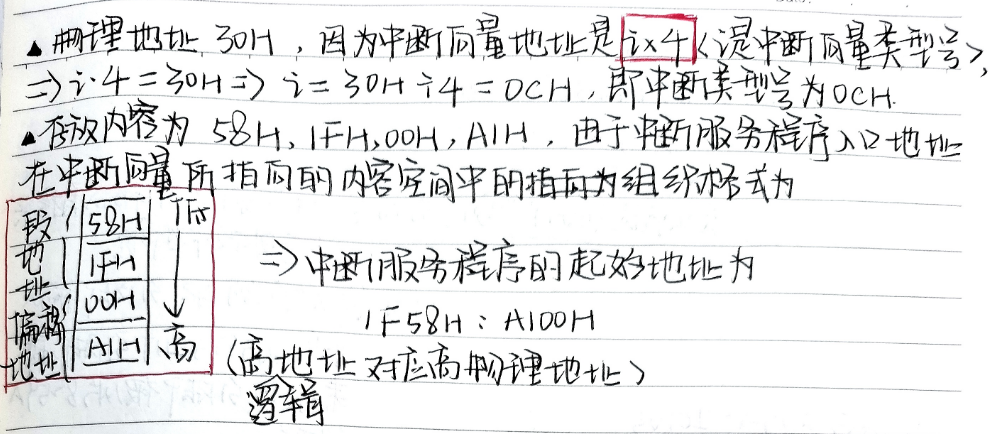 ▲物理地址 30H，因为中断向量地址是i×4（i是中断向量类型号），
⇒i·4=30H⇒i=30H÷4=0CH，即中断类型号为0CH.
▲存放内容为 58H，1FH，00H，A1H，由于中断服务程序入口地址
在中断向量所指向的内容空间中的指向为组织格式为
段地址 58H 低
1FH
偏移地址 00H
A1H 高
⇒中断服务程序的起始地址为
1F58H：A100H
（高地址对应高物理地址）
逻辑